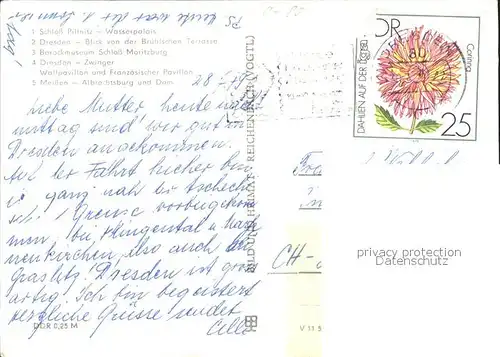 PS heute war der 1. Sommer-
tag!
1 Schloß Pillnitz — Wasserpalais
2 Dresden — Blick von der Brühlschen Terrasse
3 Barockmuseum Schloß Moritzburg
4 Dresden — Zwinger
Wallpavillon und Französischer Pavillon
5 Meißen — Albrechtsburg und Dom
28.
Liebe Mutter heute nach-
mittag sind wir gut in
Dresden angekommen.
Auf der Fahrt hierher bin
ich ganz nah der tschechi-
sch. Grenze vorbeigekom
men, bei Klingental u. Mark
neukirchen, also auch bei
Graslitz! Dresden ist groß
artig! Ich bin begeistert
herzliche Grüsse sendet
DDR 0,25 M
BILD UND HEIMAT REICHENBACH (VOGTL)
V 11 5
DDR
DAHLIEN AUF DER
Corinna
25
CH-
privacy protection
Datenschutz